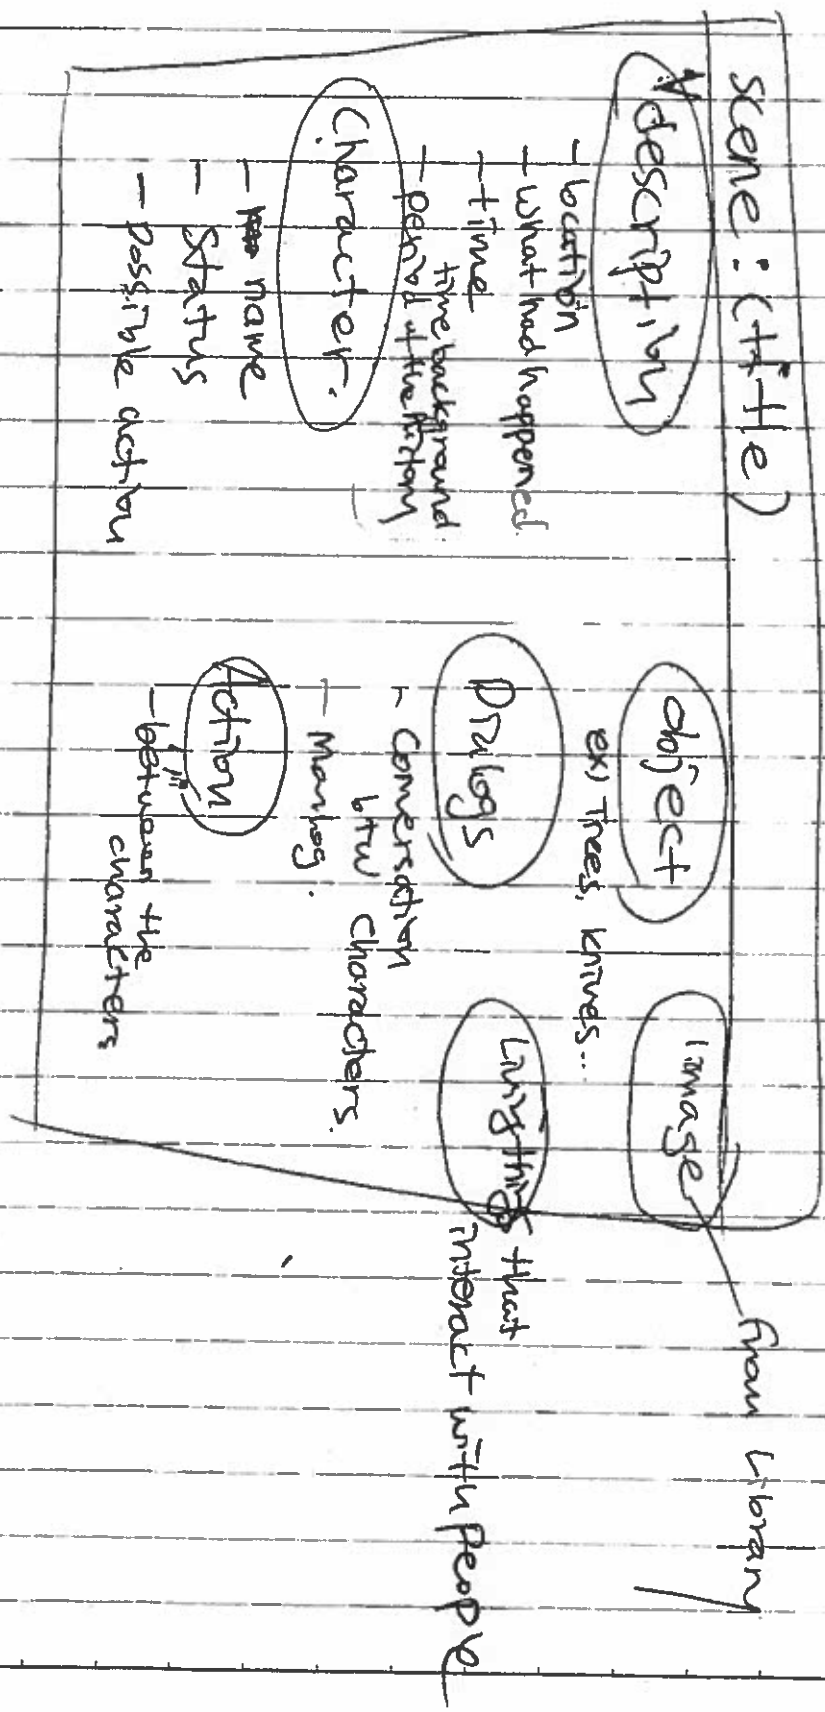 scene : (title)
description
- location
- what had happened.
- time
time background
- period of the history
Character.
- name
- Status
- possible action
object
ex) Trees, knives...
Dialogs
- Conversation
btw characters.
- Monlog.
Action
- between the
characters
image
from Library
Living things that
interact with people